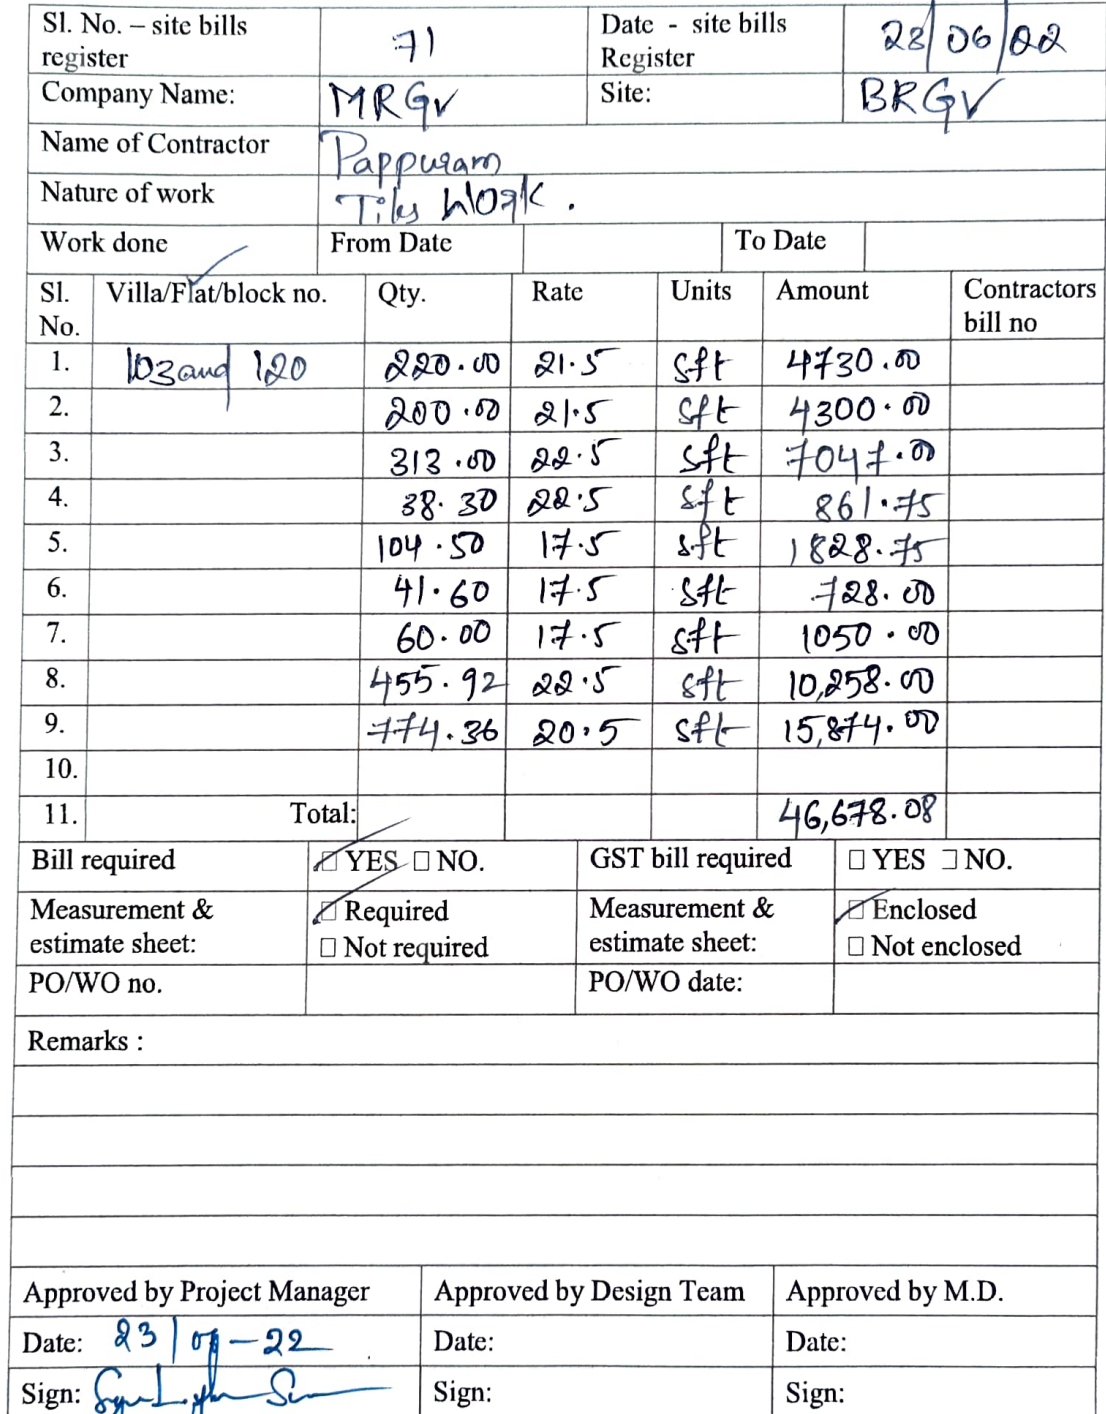 Sl. No. – site bills register 71 Date - site bills Register 28/06/22
Company Name: MRGV Site: BRGV
Name of Contractor Pappuram
Nature of work Tiles Work.
Work done From Date To Date
Sl. No. Villa/Flat/block no. Qty. Rate Units Amount Contractors bill no
1. 103 and 120 220.00 21.5 sft 4730.00
2. 200.00 21.5 sft 4300.00
3. 313.00 22.5 sft 7047.00
4. 38.30 22.5 sft 861.75
5. 104.50 17.5 sft 1828.75
6. 41.60 17.5 sft 728.00
7. 60.00 17.5 sft 1050.00
8. 455.92 22.5 sft 10,258.00
9. 774.36 20.5 sft 15,874.00
10.
11. Total: 46,678.08
Bill required ☐ YES ☐ NO. GST bill required ☐ YES ☐ NO.
Measurement & estimate sheet: ☐ Required ☐ Not required Measurement & estimate sheet: ☐ Enclosed ☐ Not enclosed
PO/WO no. PO/WO date:
Remarks :
Approved by Project Manager Approved by Design Team Approved by M.D.
Date: 23 -22 Date: Date:
Sign: Sign: Sign: